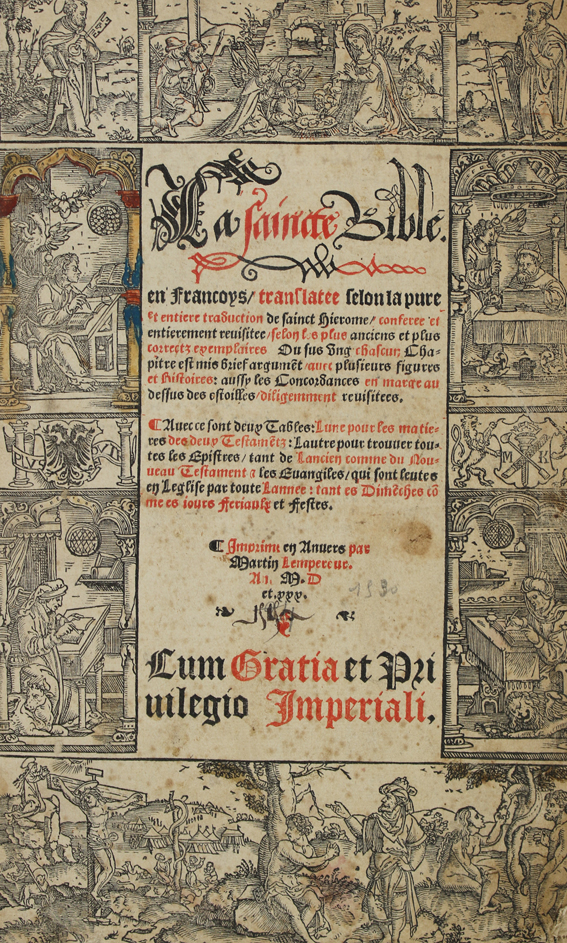 La saincte Bible.
en Francoys/ translatee selon la pure
et entiere traduction de sainct Hierome/ conferee et
entierement reuisitee/ selon les plus anciens et plus
correctz exemplaires Ou sus vng chascun Cha-
pitre est mis brief argumēt/ auec plusieurs figures
et histoires: aussy les Concordances en marge au
dessus des estoilles/ diligemment reuisitees.
¶ Auec ce sont deux Tables: Lune pour les matie-
res des deux Testamētz: Lautre pour trouuer tou-
tes les Epistres/ tant de Lancien comme du Nou-
ueau Testament & les Euangiles/ qui sont leutes
en Leglise par toute Lannee: tant es Dimēches cō
me es iours Feriaulx et Festes.
¶ Imprime en Anuers par
Martin Lempereur.
An. M. D
et. xxx.
1530
Cum Gratia et Pri
uilegio Imperiali.